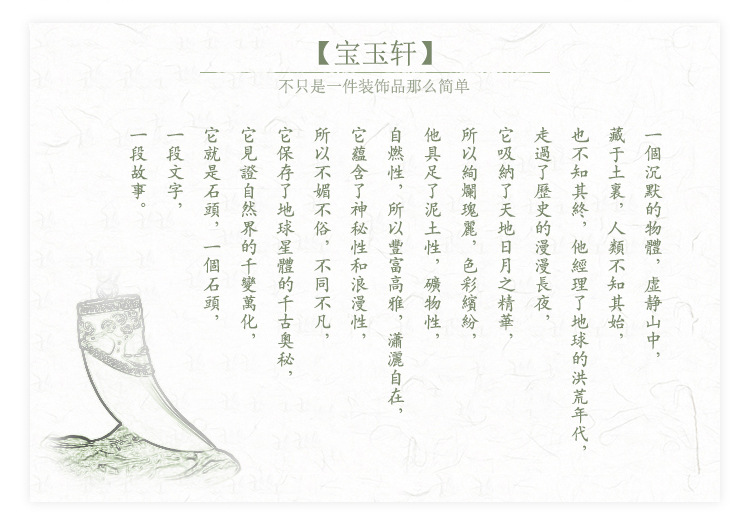 【宝玉轩】
不只是一件装饰品那么简单
一個沉默的物體，虛静山中，
藏于土裏，人類不知其始，
也不知其終，他經理了地球的洪荒年代，
走過了歷史的漫漫長夜，
它吸納了天地日月之精華，
所以絢爛瑰麗，色彩繽紛，
他具足了泥土性，礦物性，
自燃性，所以豐富高雅，瀟灑自在，
它蘊含了神秘性和浪漫性，
所以不媚不俗，不同不凡，
它保存了地球星體的千古奥秘，
它見證自然界的千變萬化，
它就是石頭，一個石頭，
一段文字，
一段故事。